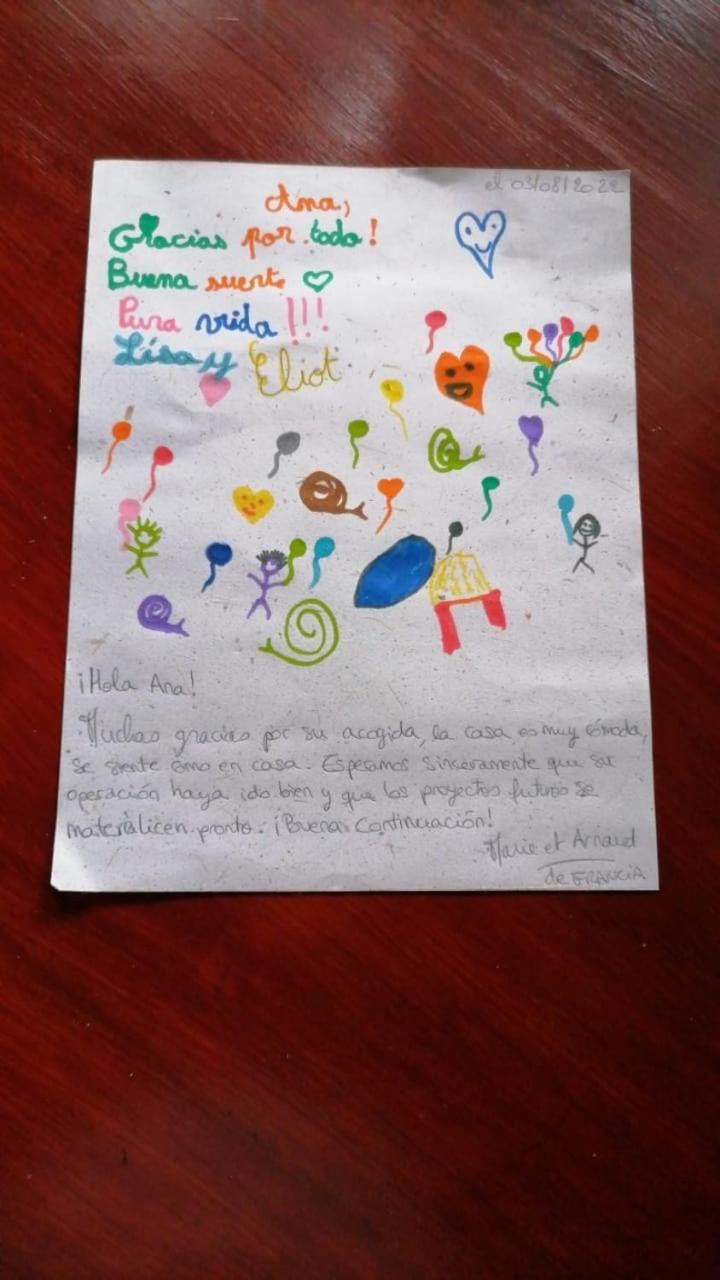 el 03/08/2022
Ana,
Gracias por todo!
Buena suerte
Pura vida !!!
Lisa y Eliot
¡Hola Ana!
Muchas gracias por su acogida, la casa es muy cómoda,
se siente ómo en casa. Esperamos sinceramente que su
operación haya ido bien y que los proyectos futuros se
materialicen pronto. ¡Buena Continuación!
Marie et Arnaud
de FRANCIA